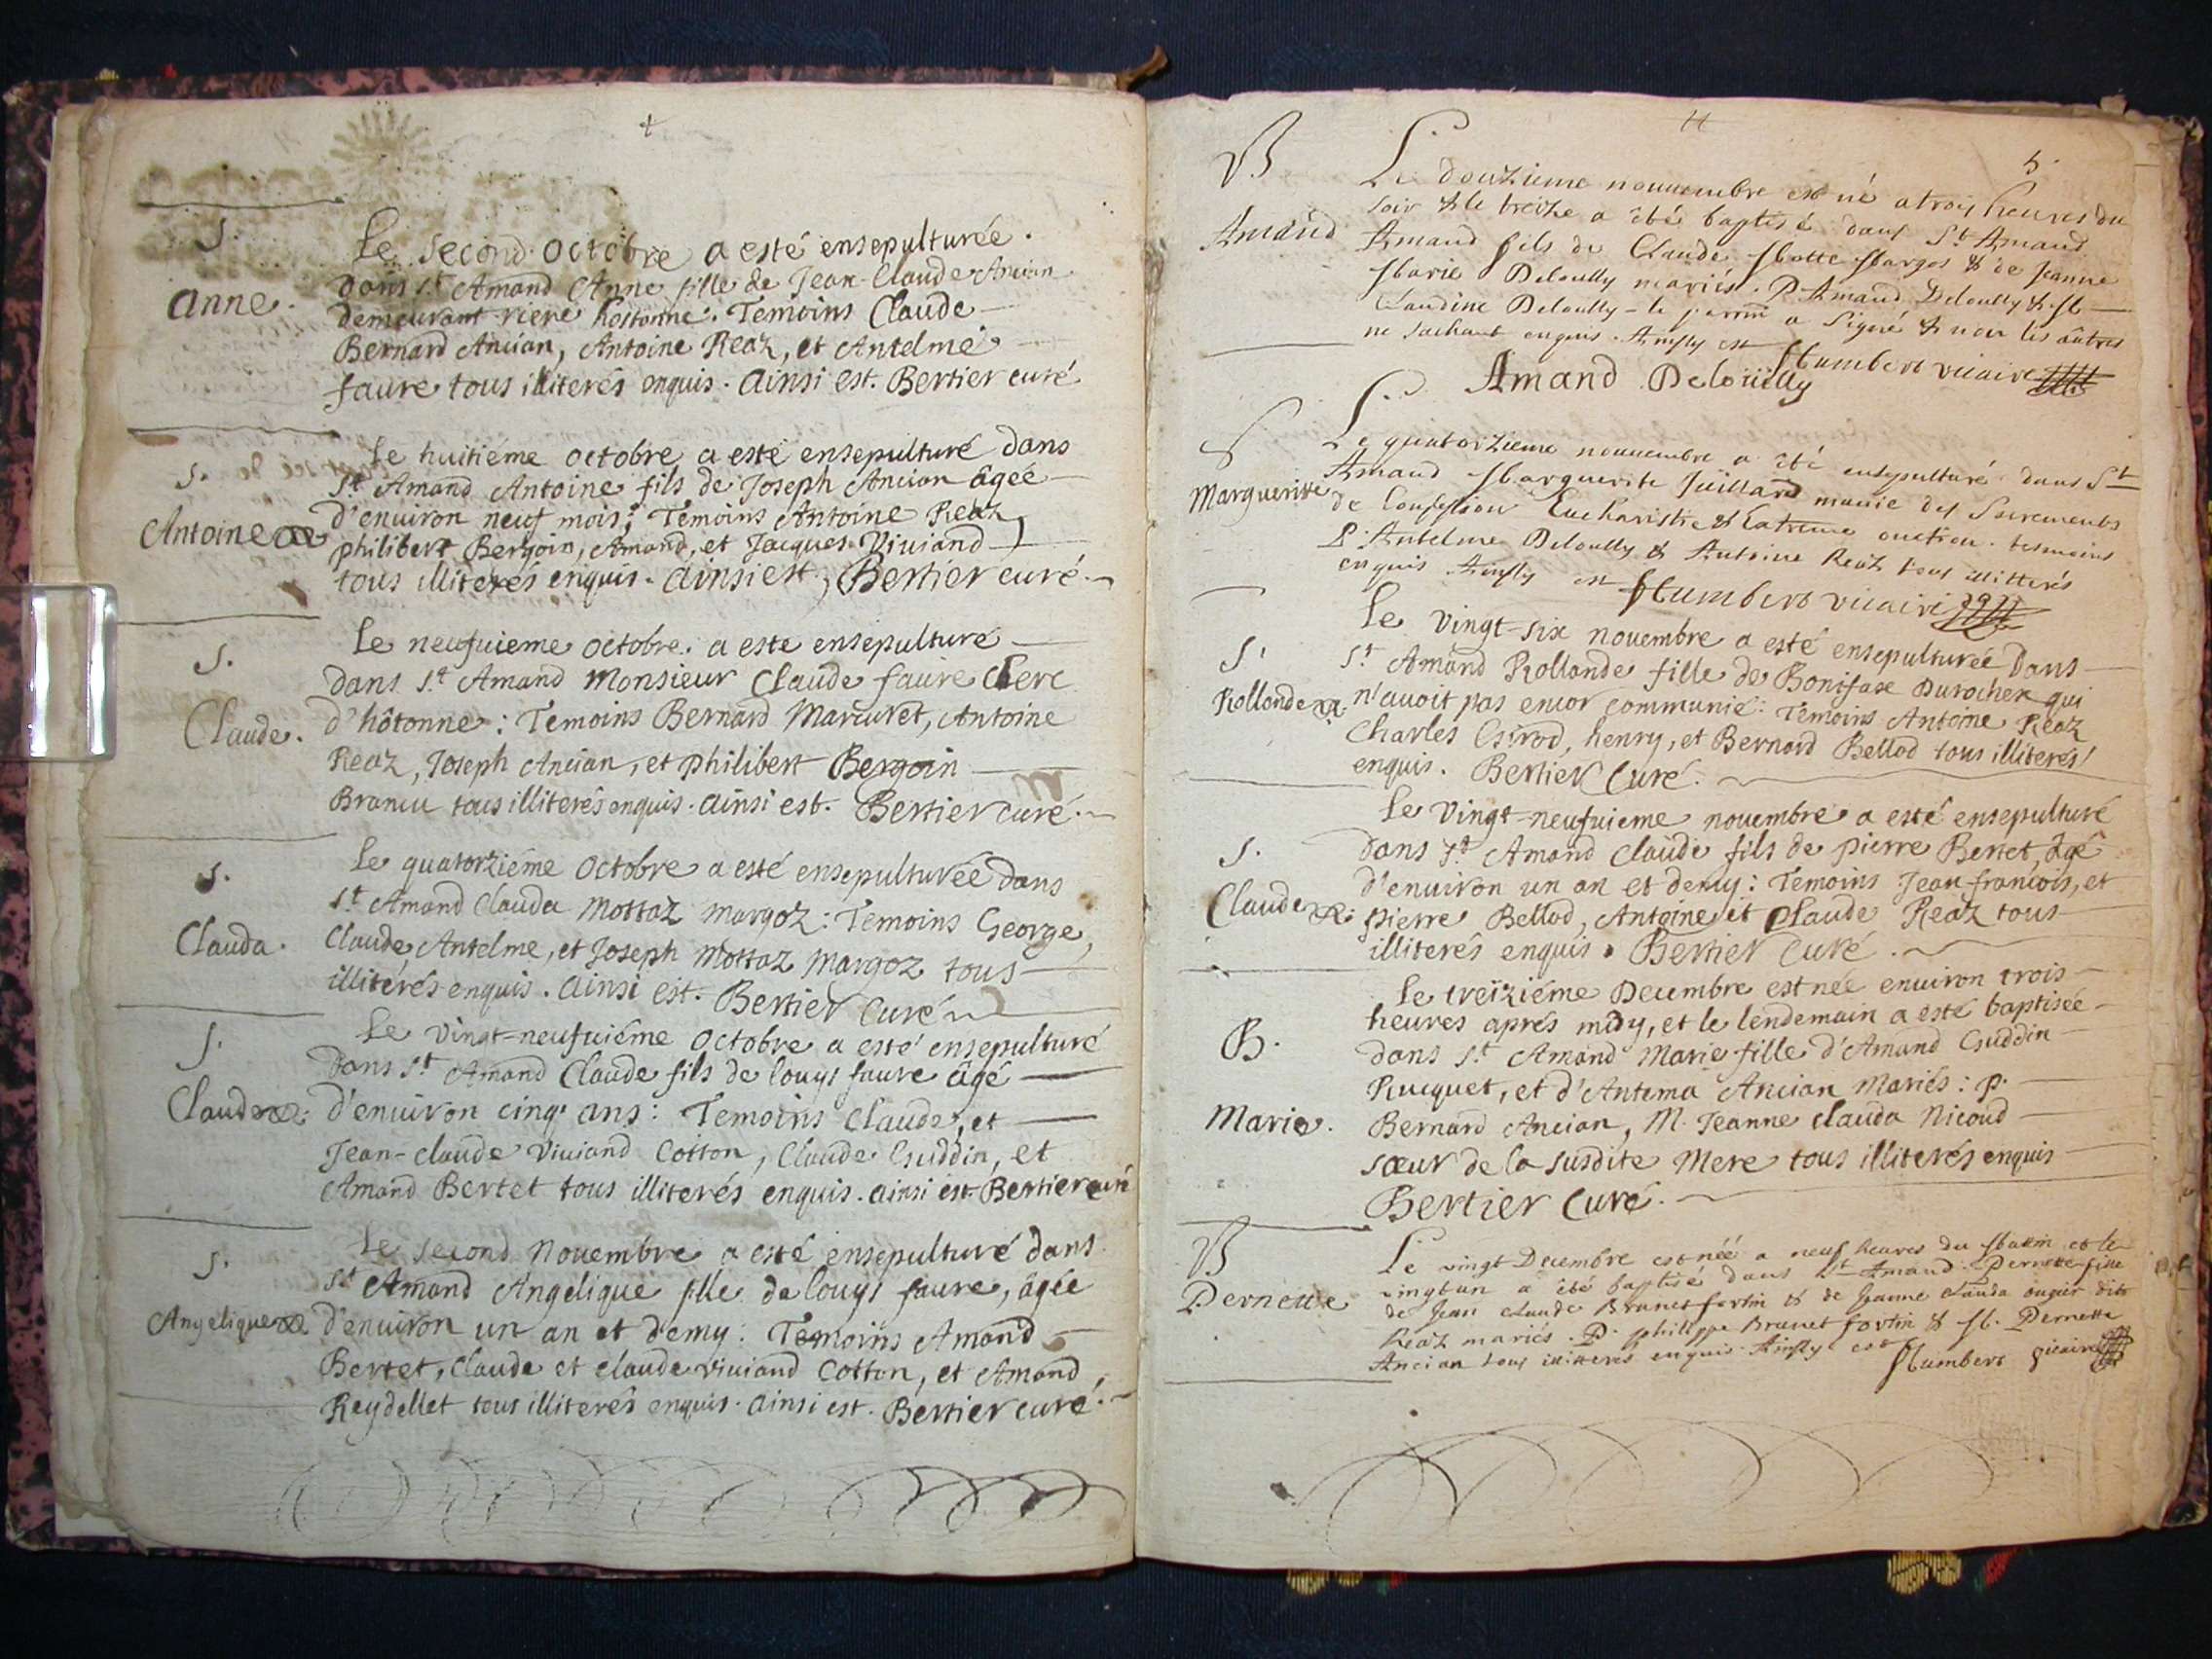 S.
Anne.
Le second octobre a esté ensepulturée
dans s.t Amand Anne fille de Jean-Claude Ancian
demeurant riere hostonne: Temoins Claude
Bernard Ancian, Antoine Reaz, et Antelme
faure tous illiterés enquis. ainsi est. Bertier curé
S.
Antoine
Le huitiéme octobre a esté ensepulturé dans
s.t Amand Antoine fils de Joseph Ancian âgeé
d'enuiron neuf mois; Temoins Antoine Reaz
philibert Bergoin, Amand, et Jacques Viuiand
tous illiterés enquis. ainsi est, Bertier curé.
S.
Claude.
Le neufuieme octobre a esté ensepulturé
dans s.t Amand Monsieur Claude faure Clerc
d'hôtonne: Temoins Bernard Marcuret, Antoine
Reaz, Joseph Ancian, et philibert Bergoin
Brancu tous illiterés enquis. ainsi est. Bertier curé.
S.
Clauda.
Le quatorziéme octobre a esté ensepulturée dans
s.t Amand Clauda Mottaz margoz: Temoins George,
Claude, Antelme, et Joseph Mottaz Margoz tous
illiterés enquis. ainsi est. Bertier Curé
S.
Claude
Le vingt-neufuiéme octobre a esté ensepulturé
dans s.t Amand Claude fils de louys faure âgé
d'enuiron cinq ans: Temoins Claude, et
Jean-claude Viuiand Cotton, Claude Guddin, et
Amand Bertet tous illiterés enquis. ainsi est. Bertier curé
S.
Angelique
Le second Nouembre a esté ensepulturé dans
s.t Amand Angelique fille de louys faure, âgée
d'enuiron un an et demy: Temoins Amand
Bertet, Claude et claude viuiand Cotton, et Amand
Reydellet tous illiterés enquis. ainsi est. Bertier curé.
5.
B
Amand
Le douzieme nouuembre est né a troys heures du
soir & le treize a été baptisé dans S.t Amand
Amand fils de Claude Motte Margos & de Jeanne
Marie Deloully mariés. P. Amand Deloully & M
Claudine Deloully - le parrin a signé & non les autres
ne sachant enquis. Ainsy est Humbert vicaire
Amand Deloüilly
S
Marguerite
Le quatorzieme nouuembre a été ensepulturé dans S.t
Amand Marguerite Juillard munie des Sacrements
de Confession Eucharistie & Extreme onction. tesmoins
Antelme Deloully & Antoine Reaz tous illitterés
enquis Ainsy est Humbert vicaire
S.
Rollonde
Le vingt-six nouembre a esté ensepulturée dans
s.t Amand Rollande fille de Bonifase Durocher qui
n'auoit pas encor communié: Temoins Antoine Reaz
Charles Girod, henry, et Bernard Bellod tous illiterés
enquis. Bertier Curé.
S.
Claude
Le vingt-neufuieme nouembre a esté ensepulturé
dans s.t Amand Claude fils de pierre Bertet, âgé
d'enuiron un an et demy: Temoins Jean francois, et
pierre Bellod, Antoine et Claude Reaz tous
illiterés enquis. Bertier Curé.
B.
Marie.
Le treiziéme Decembre est née enuiron trois
heures aprés midy, et le lendemain a esté baptisée
dans s.t Amand Marie fille d'Amand Guddin
Rucquet, et d'Antema Ancian Mariés: p.
Bernard Ancian, M. Jeanne Clauda Nicoud
sœur de la susdite Mere tous illiterés enquis
Bertier Curé.
B
Pernette
Le vingt Decembre est née a neuf heures du Matin et le
vingtun a été baptisé dans S.t Amand Pernette fille
de Jean Claude Brunet fortin & de Jeanne Clauda ougier dit
Reaz mariés. P. philippe Brunet fortin & M. Pernette
Ancian tous illitteres enquis Ainsy est Humbert vicaire